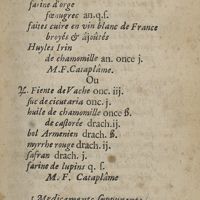 farine d'orge
fœnugrec an.q.s.
faites cuire en vin blanc de France
broyés & ajoûtés
Huyles Irin
de chamomille an. once j.
M.F. Cataplâme.
Ou
♃. Fiente de Vache onc. iij.
suc de cicutaria onc. j.
huile de chamomille once ß.
de castorée drach. ij.
bol Armenien drach. ß.
myrrhe rouge drach. ij.
safran drach. j.
farine de lupins q. s.
M. F. Cataplâme